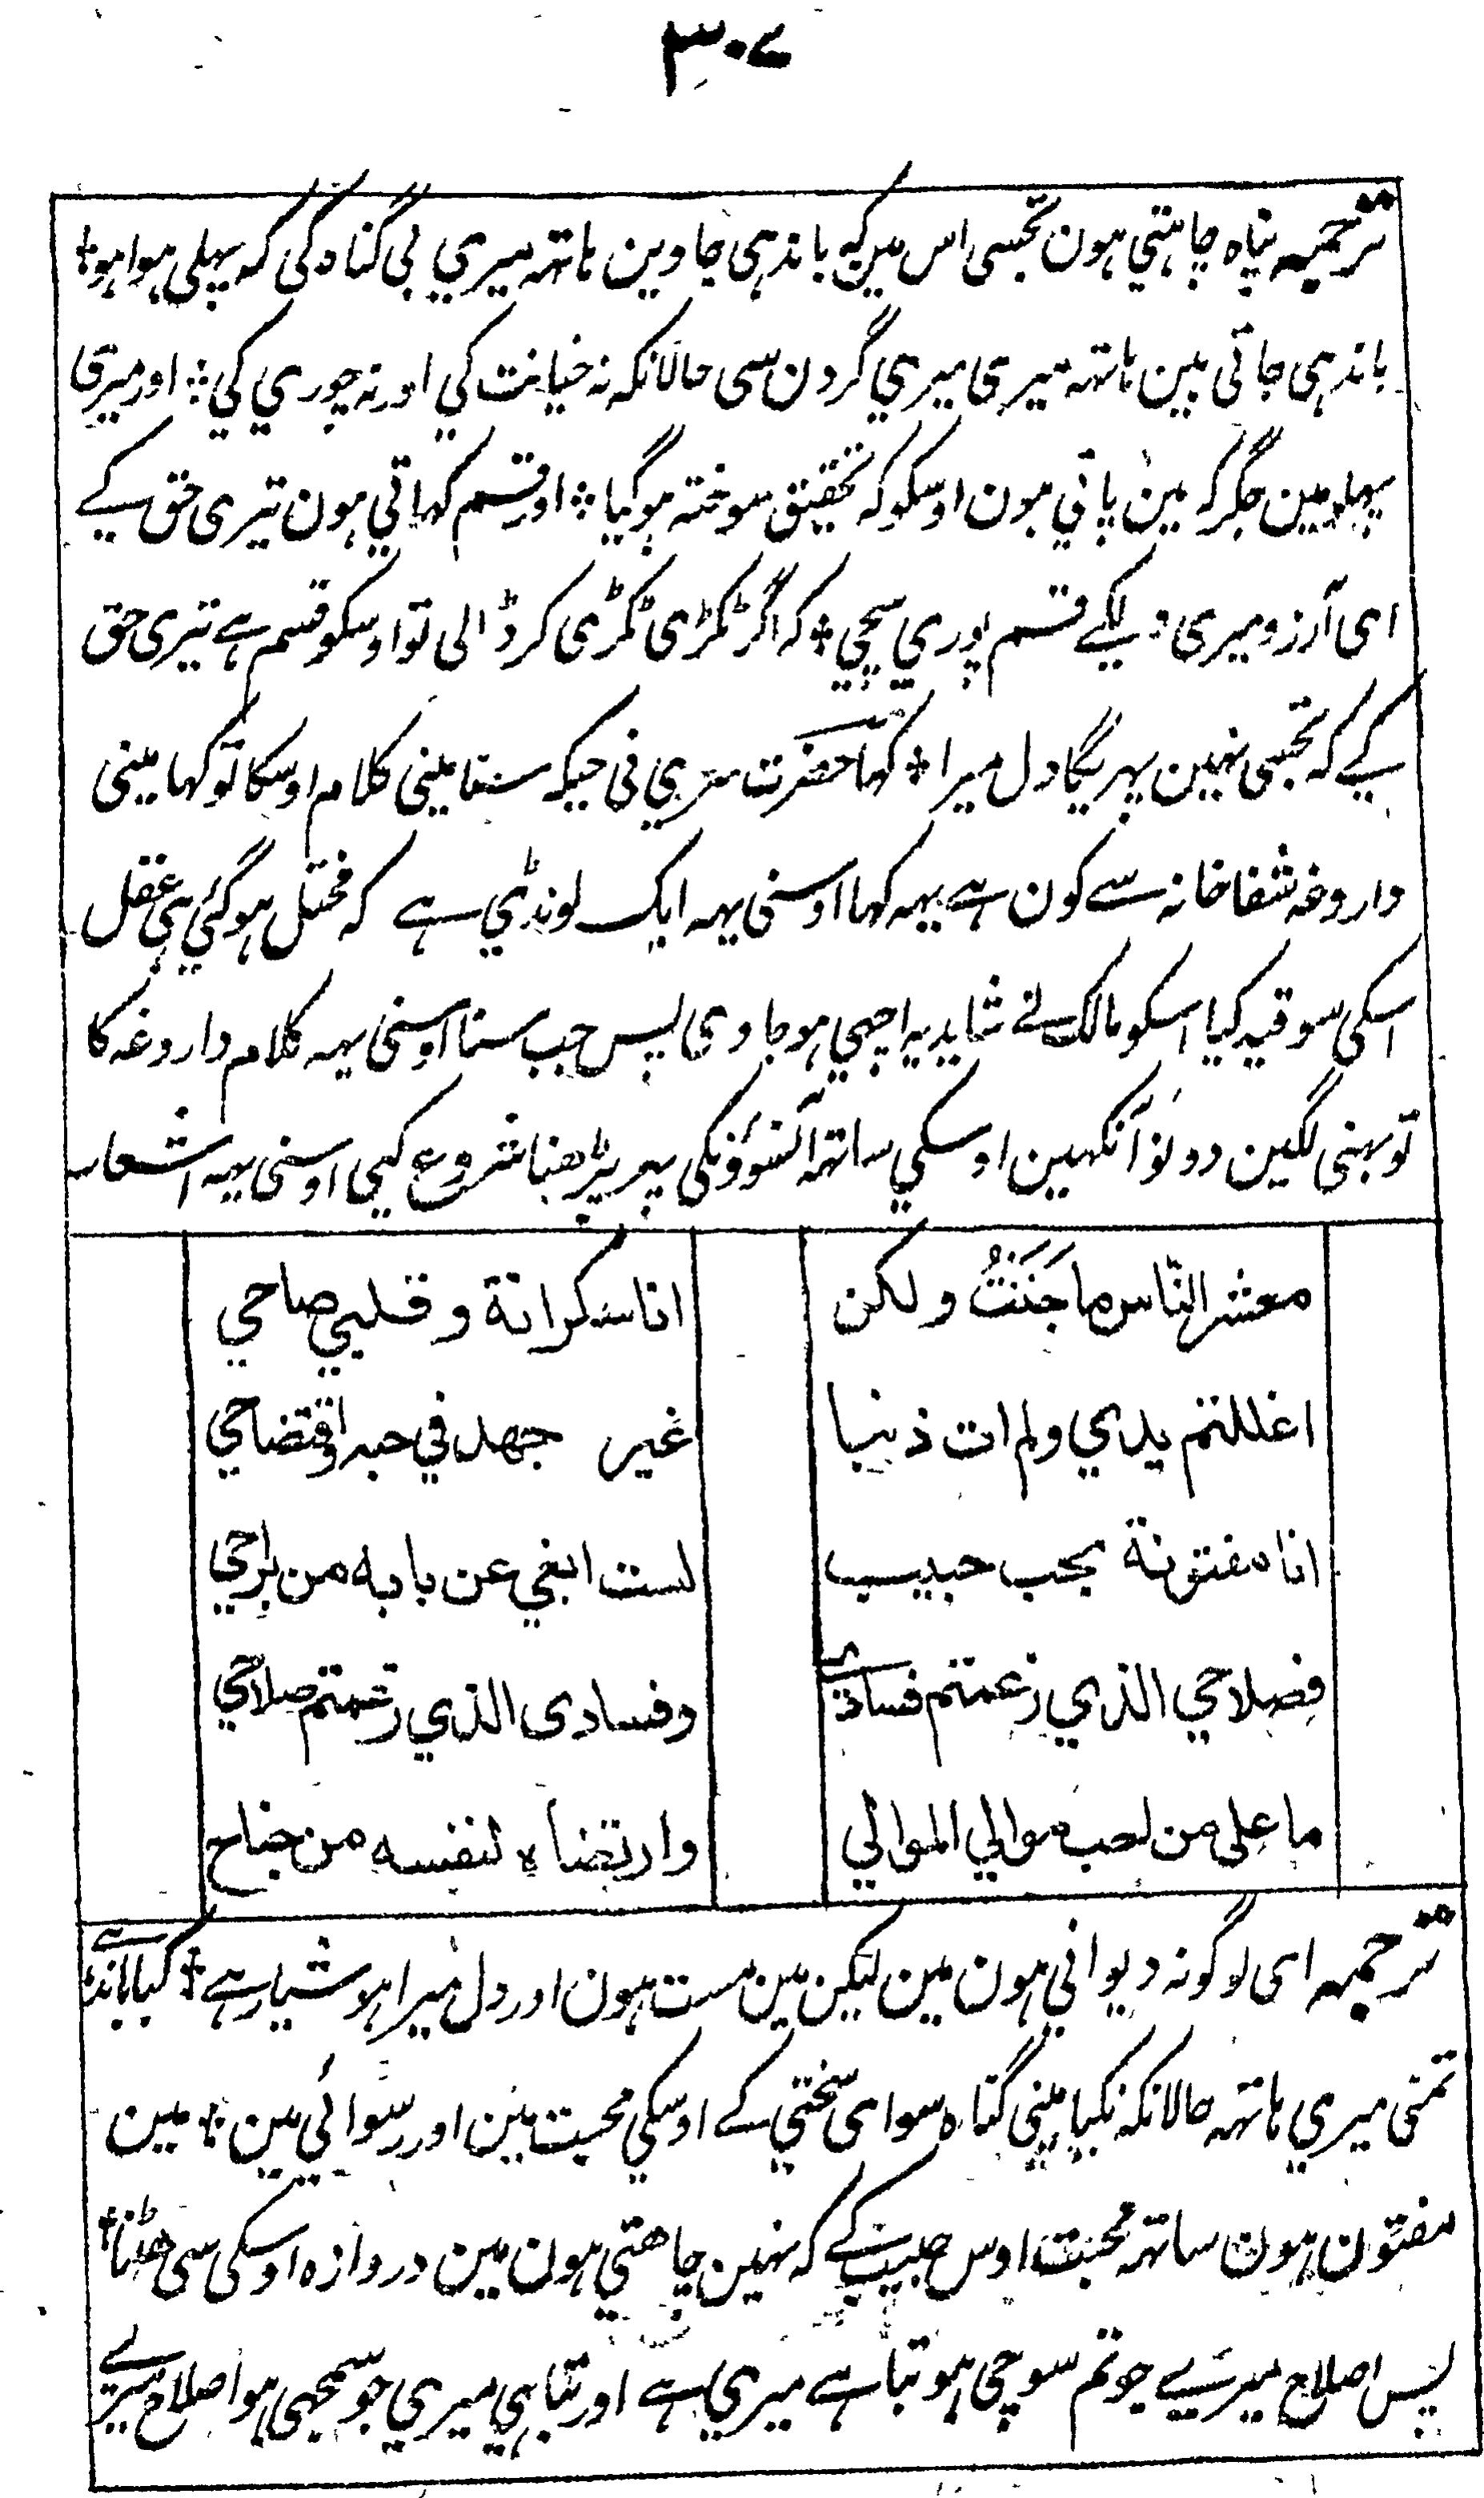 ۳۰۷
ترجمہ پناہ چاہتی ہون تجسی اس مین کہ باندہی جاوین ہاتہہ میری بی گناہ کی کہ پہلی ہوا ہو؛
باندہی جاتی ہین ہاتہہ میری میری گردن سی حالانکہ نہ خیانت کی اور نہ چوری کی ؛ اور میری
پہلو مین جگر کہ مین پاتی ہون اوسکو کہ تحقیق سوختہ ہوگیا ؛ اور قسم کہاتی ہون تیری حق کے
ای آرزو میری ؛ لاکے قسم پوری سچی ؛ کہ اگر ٹکڑی ٹکڑی کر ڈالی تو اوسکو قسم ہے تیری حق
کے کہ تجسی نہین پہریگا دل میرا ؛ کہا حضرت سری نی جبکہ سنا مینی کلام اوسکا تو کہا مینی
داروغہ شفاخانہ سے کون ہے یہہ کہا اوسنی یہہ ایک لونڈی ہے کہ مختل ہوگئی ہی عقل
اسکی سو قید کیا اسکو مالک نے شاید یہ اچہی ہو جاوی پس جب سنا اوسنی یہہ کلام داروغہ کا
تو بہنی لگین دونو آنکہین اوسکی ساتہہ آنسوؤنکی پہر پڑہنا شروع کیی اوسنی یہہ اشعار
معشر النّاس ما جَنَنْتُ ولکن انا سکرانة و قلبي صاحي
اغللتم یدي ولم ات ذنبا غیر جهد في حبه افتضاحي
انا مفتونة بحب حبیب لست ابغي عن بابه من براحي
فصلاحي الذي زعمتم فسادي وفسادی الذي زعمتم صلاحي
ما علی من لعب موالي الموالي وارتضاه لنفسه من جناح
ترجمہ ای لوگو نہ دیوانی ہون مین لیکن مین مست ہون اور دل میرا ہوشیار ہے ؛ کیا باندہے
تمنی میری ہاتہہ حالانکہ نکیا مینی گناہ سوای سختی کے اوسکی محبت مین اور رسوائی مین ؛ مین
مفتون ہون ساتہہ محبت اوس حبیب کے کہ نہین چاہتی ہون مین دروازہ اوسکی سی ہٹنا ؛
پس اصلاح میرے جو تم سوچی ہو تباہے میری ہے اور تباہی میری جو سمجہی ہو اصلاح میرے